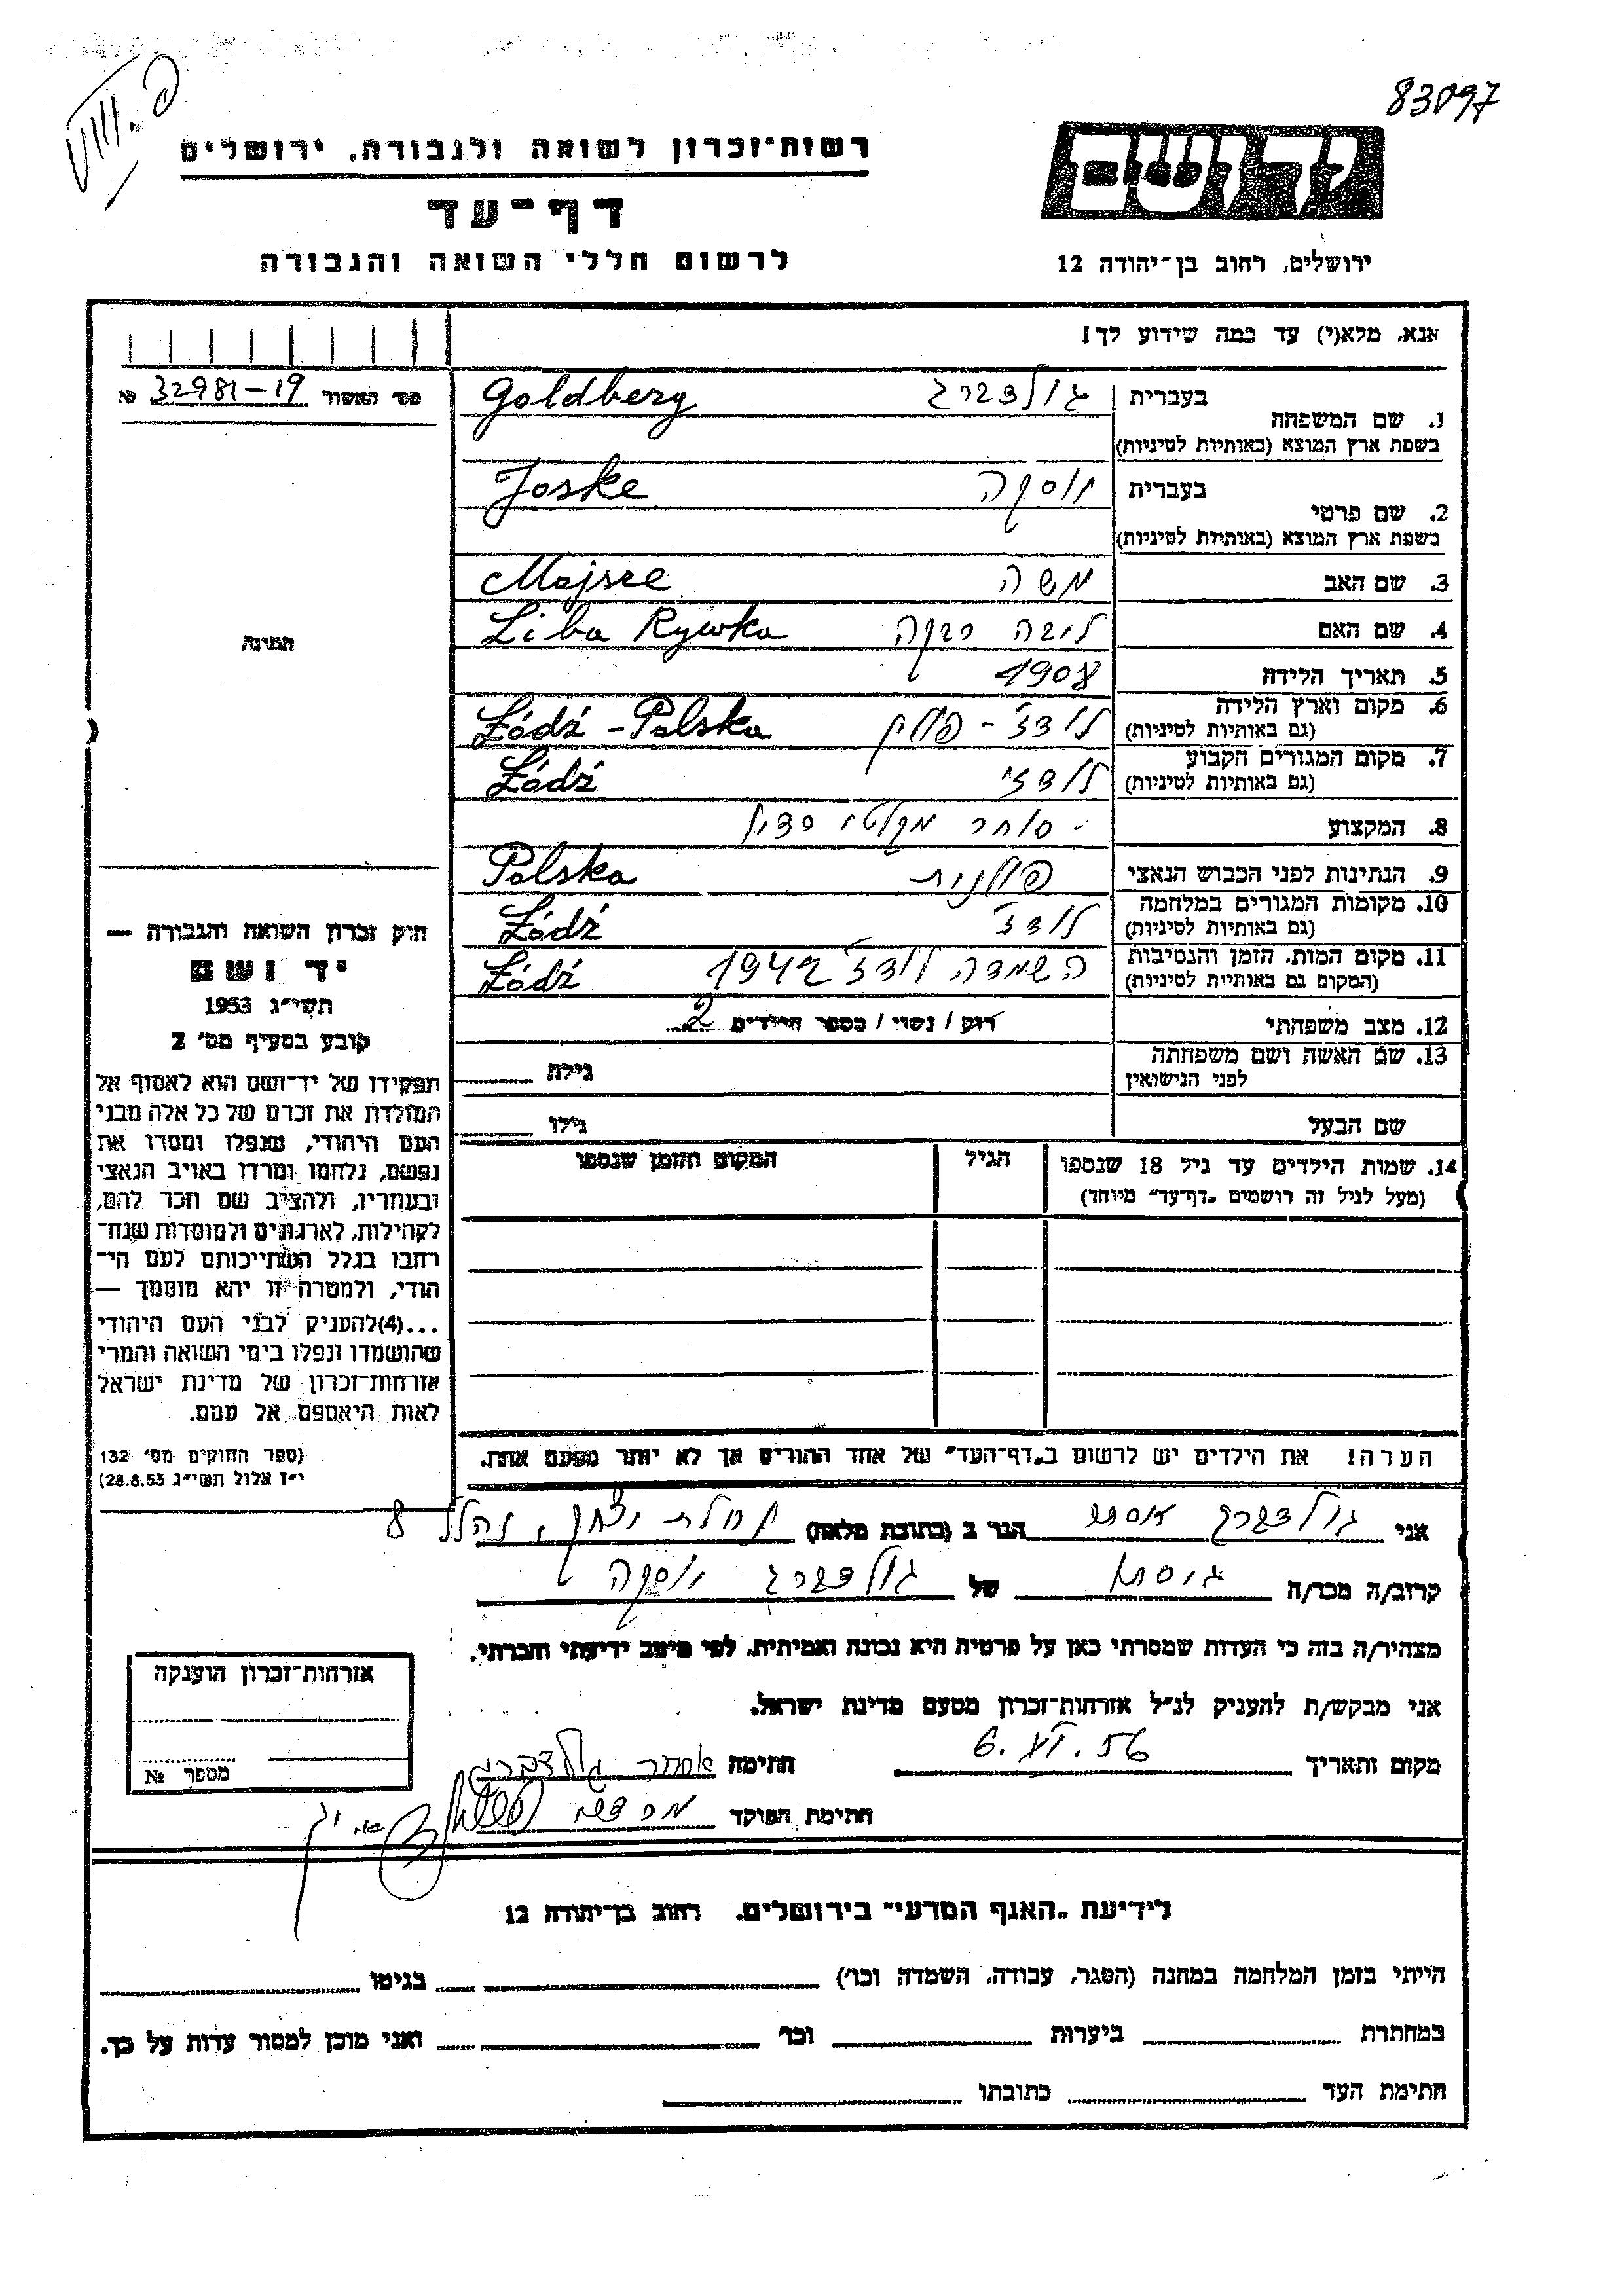 83097
רשות־זכרון לשואה ולגבורה, ירושלים
דף־עד
לרשום חללי השואה והגבורה
יד ושם
ירושלים, רחוב בן־יהודה 12
אנא, מלא(י) עד כמה שידוע לך!
מס' האשור 32981-19 №
1. שם המשפחה
בעברית גולדברג Goldberg
בשפת ארץ המוצא (באותיות לטיניות)
2. שם פרטי
בעברית יוסקה Joske
בשפת ארץ המוצא (באותיות לטיניות)
3. שם האב משה Majsze
4. שם האם ליבה רבקה Liba Rywka
5. תאריך הלידה 1908
6. מקום וארץ הלידה לודז' - פולין Łódź - Polska
(גם באותיות לטיניות)
7. מקום המגורים הקבוע לודז' Łódź
(גם באותיות לטיניות)
8. המקצוע - סוחר מקלטי רדיו
9. הנתינות לפני הכבוש הנאצי פולנית Polska
10. מקומות המגורים במלחמה לודז' Łódź
(גם באותיות לטיניות)
11. מקום המות, הזמן והנסיבות השמדה לודז' 1942 Łódź
(המקום גם באותיות לטיניות)
12. מצב משפחתי רוק / נשוי / מספר הילדים 2
13. שם האשה ושם משפחתה
לפני הנישואין
גילה
שם הבעל גילו
14. שמות הילדים עד גיל 18 שנספו
(מעל לגיל זה רושמים "דף־עד" מיוחד)
הגיל
המקום והזמן שנספו
הערה! את הילדים יש לרשום ב"דף־העד" של אחד ההורים אך לא יותר מפעם אחת.
תמונה
חוק זכרון השואה והגבורה —
יד ושם
תשי"ג 1953
קובע בסעיף מס' 2
תפקידו של יד־ושם הוא לאסוף אל
המולדת את זכרם של כל אלה מבני
העם היהודי, שנפלו ומסרו את
נפשם, נלחמו ומרדו באויב הנאצי
ובעוזריו, ולהציב שם וזכר להם,
לקהילות, לארגונים ולמוסדות שנח־
רבו בגלל השתייכותם לעם הי־
הודי, ולמטרה זו יהא מוסמך —
...(4)להעניק לבני העם היהודי
שהושמדו ונפלו בימי השואה והמרי
אזרחות־זכרון של מדינת ישראל
לאות היאספם אל עמם.
(ספר החוקים מס' 132
י"ז אלול תשי"ג 28.8.53)
אני גולדברג אסתר הגר ב (כתובת מלאה) נחלת יצחק, נהלל 8
קרוב/ה מכר/ה גיסתו של גולדברג יוסקה
מצהיר/ה בזה כי העדות שמסרתי כאן על פרטיה היא נכונה ואמיתית, לפי מיטב ידיעתי והכרתי.
אני מבקש/ת להעניק לנ"ל אזרחות־זכרון מטעם מדינת ישראל.
מקום ותאריך 6.VI.56 חתימה אסתר גולדברג
חתימת הפוקד
אזרחות־זכרון הוענקה
מספר №
לידיעת "האגף המדעי" בירושלים. רחוב בן־יהודה 12
הייתי בזמן המלחמה במחנה (הסגר, עבודה, השמדה וכו') בגיטו
במחתרת ביערות וכו' ואני מוכן למסור עדות על כך.
חתימת העד כתובתו